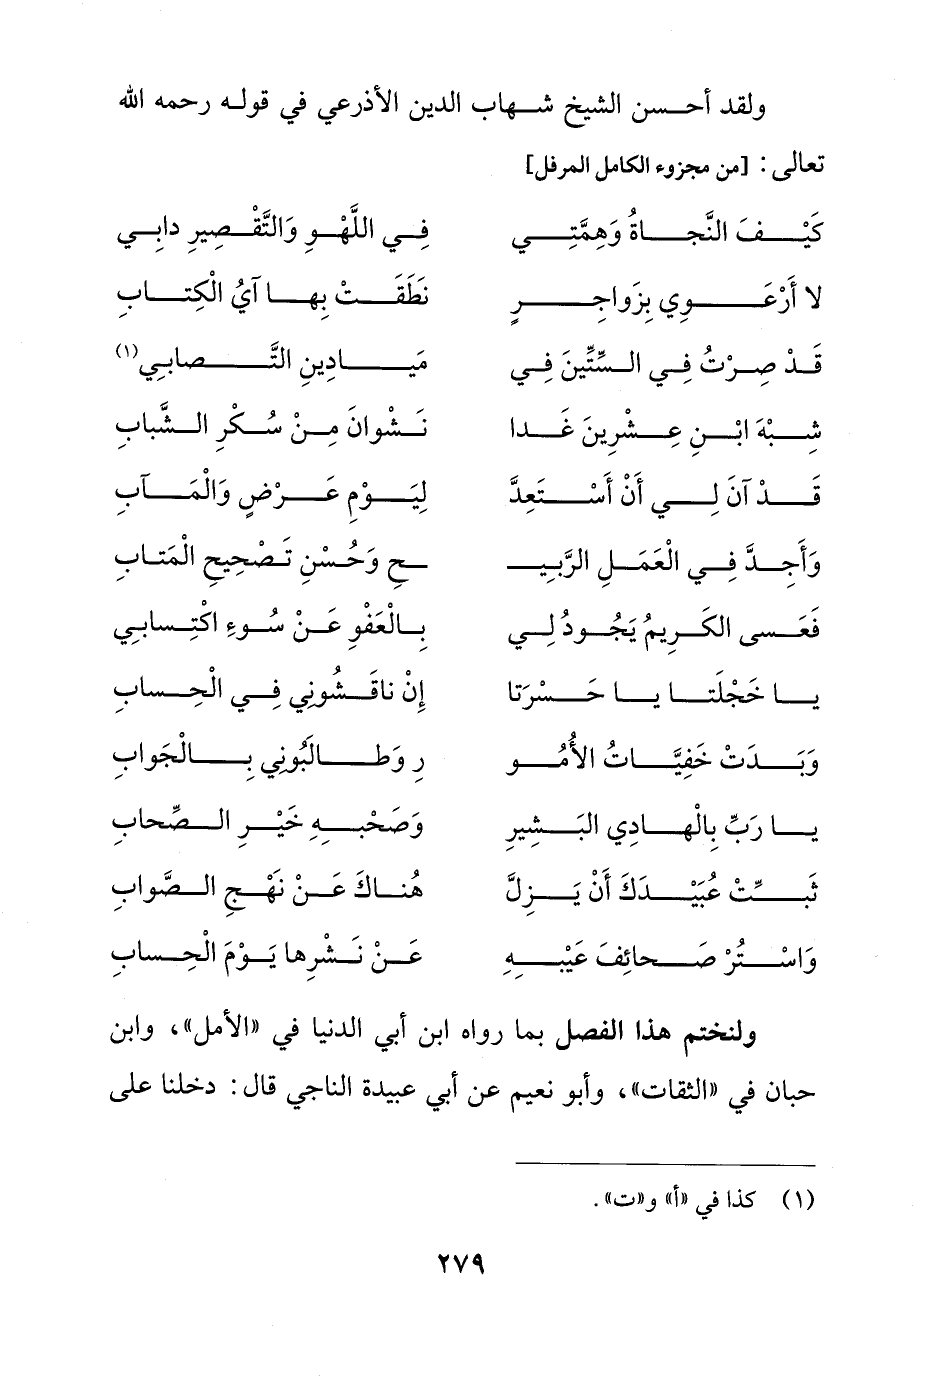 ولقد أحسن الشيخ شهاب الدين الأذرعي في قوله رحمه الله
تعالى: [من مجزوء الكامل المرفل]
كَيْفَ النَّجاةُ وَهِمَّتِي فِي اللَّهْوِ وَالتَّقْصِيرِ دابِي
لا أَرْعَوِي بِزَواجِرٍ نَطَقَتْ بِها آيُ الْكِتابِ
قَدْ صِرْتُ فِي السِّتِّينَ فِي مَيادِينِ التَّصابِي(١)
شِبْهَ ابْنِ عِشْرِينَ غَدا نَشْوانَ مِنْ سُكْرِ الشَّبابِ
قَدْ آنَ لِي أَنْ أَسْتَعِدَّ لِيَوْمِ عَرْضٍ وَالْمَآبِ
وَأَجِدَّ فِي الْعَمَلِ الرَّبِيـ ـحِ وَحُسْنِ تَصْحِيحِ الْمَتابِ
فَعَسى الكَرِيمُ يَجُودُ لِي بِالْعَفْوِ عَنْ سُوءِ اكْتِسابِي
يا خَجْلَتا يا حَسْرَتا إِنْ ناقَشُونِي فِي الْحِسابِ
وَبَدَتْ خَفِيَّاتُ الأُمُو رِ وَطالَبُونِي بِالْجَوابِ
يا رَبِّ بِالْهادِي البَشِيرِ وَصَحْبِهِ خَيْرِ الصِّحابِ
ثَبِّتْ عُبَيْدَكَ أَنْ يَزِلَّ هُناكَ عَنْ نَهْجِ الصَّوابِ
وَاسْتُرْ صَحائِفَ عَيْبِهِ عَنْ نَشْرِها يَوْمَ الْحِسابِ
ولنختم هذا الفصل بما رواه ابن أبي الدنيا في «الأمل»، وابن
حبان في «الثقات»، وأبو نعيم عن أبي عبيدة الناجي قال: دخلنا على
(١) كذا في «أ» و«ت».
٢٧٩